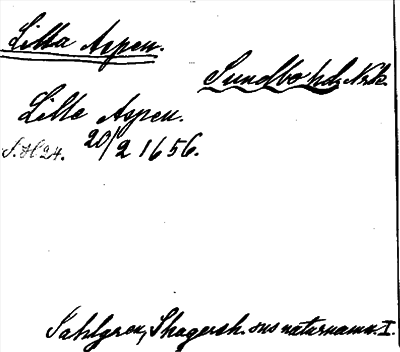 Lilla Aspen.
Sundbo hd, Nrk.
Lille Aspen.
20/2 1656.
Sahlgren, Skagersh. sns naturnamn. I.